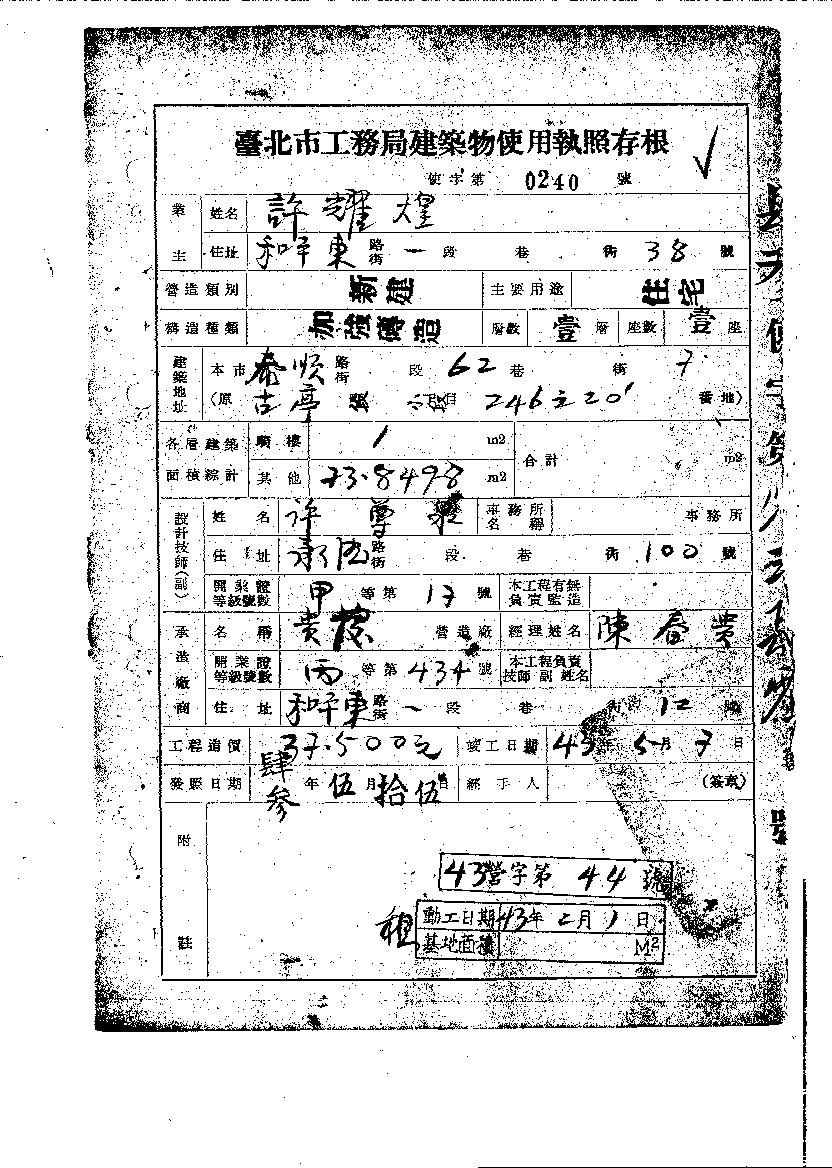 臺北市工務局建築物使用執照存根
使字第 0240 號
業主 姓名 許耀煌
住址 和平東路街 一段 巷 街 38 號
營造類別 新建 主要用途 住宅
構造種類 加強磚造 層數 壹層 座數 壹座
建築地址 本市 泰順路街 段 62 巷 街 7
(原 古亭 段 小段 246之20 番地)
各層建築面積綜計 騎樓 1 m2 合計 m2
其他 73.8498 m2
設計技師(副) 姓名 許 事務所名稱 事務所
住址 路街 段 巷 街 100 號
開業證等級號數 甲 等第 17 號 本工程有無負責監造
承造廠商 名稱 貴 營造廠 經理姓名 陳春貴
開業證等級號數 丙 等第 434 號 本工程負責技師 副 姓名
住址 和平東路街 一段 巷 街 12 號
工程造價 37.500元 竣工日期 43年5月7日
發照日期 肆參年伍月拾伍日 經手人 (簽章)
附註
43營字第 44 號
動工日期 43年2月1日
基地面積 M2
租
號